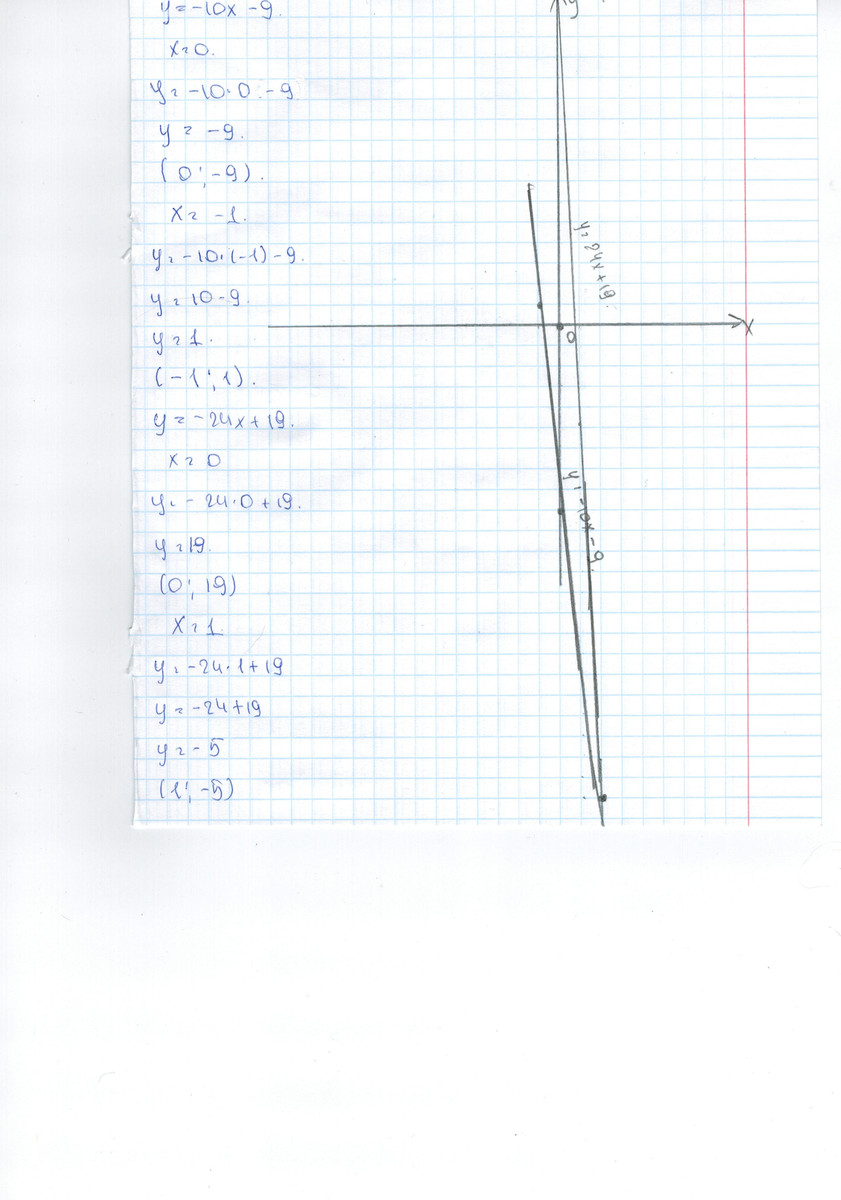 y=-10x-9.
x=0.
y=-10·0-9
y=-9.
(0;-9).
x=-1.
y=-10·(-1)-9.
y=10-9.
y=1.
(-1;1).
y=-24x+19.
x=0
y=-24·0+19.
y=19.
(0;19)
x=1
y=-24·1+19
y=-24+19
y=-5
(1;-5)
y
y=24x+19.
x
0
y=-10x-9.